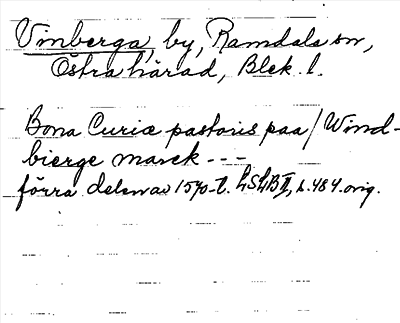 Vinberga, by, Ramdala sn,
Östra härad, Blek. l.
Bona Curiæ pastoris paa / Wind-
bierge marck - - -
förra delen av 1570-t. LSLB II, s. 484. orig.